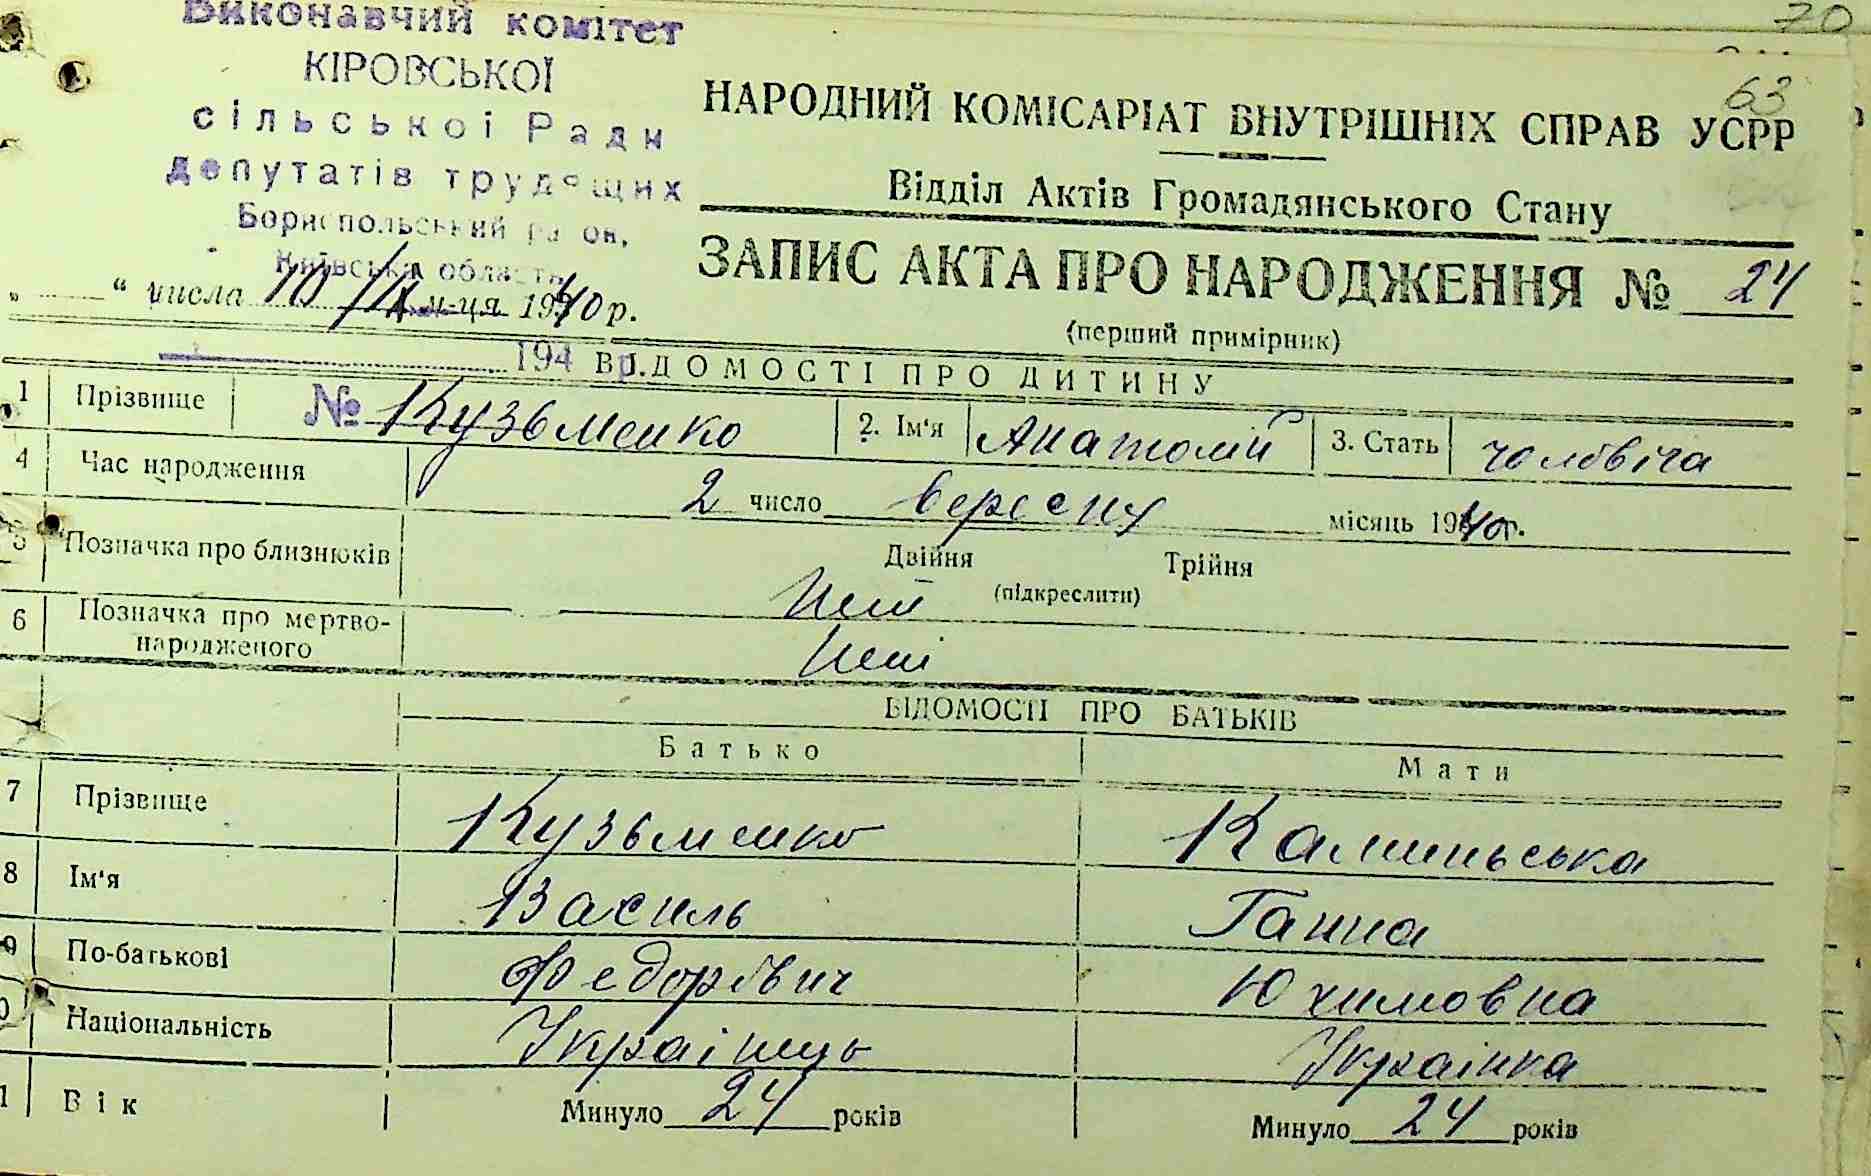 70
63
Виконавчий комітет
КІРОВСЬКОЇ
сільської Ради
депутатів трудящих
Бориспольський район,
Київська область
НАРОДНИЙ КОМІСАРІАТ ВНУТРІШНІХ СПРАВ УСРР
Відділ Актів Громадянського Стану
ЗАПИС АКТА ПРО НАРОДЖЕННЯ № 24
(перший примірник)
„ “ числа 10/IX м-ця 1940 р.
194 р.
ВІДОМОСТІ ПРО ДИТИНУ
1 Прізвище № Кузьменко 2. Ім'я Анатолій 3. Стать чоловіча
4 Час народження 2 число вересня місяць 1940 г.
5 Позначка про близнюків Двійня Трійня
(підкреслити)
Нет
6 Позначка про мертво-
народженого Неті
ВІДОМОСТІ ПРО БАТЬКІВ
Батько Мати
7 Прізвище Кузьменко Калиньська
8 Ім'я Василь Ганна
9 По-батькові Федорівич Юхимовна
0 Національність Україньць Українка
1 Вік Минуло 24 років Минуло 24 років